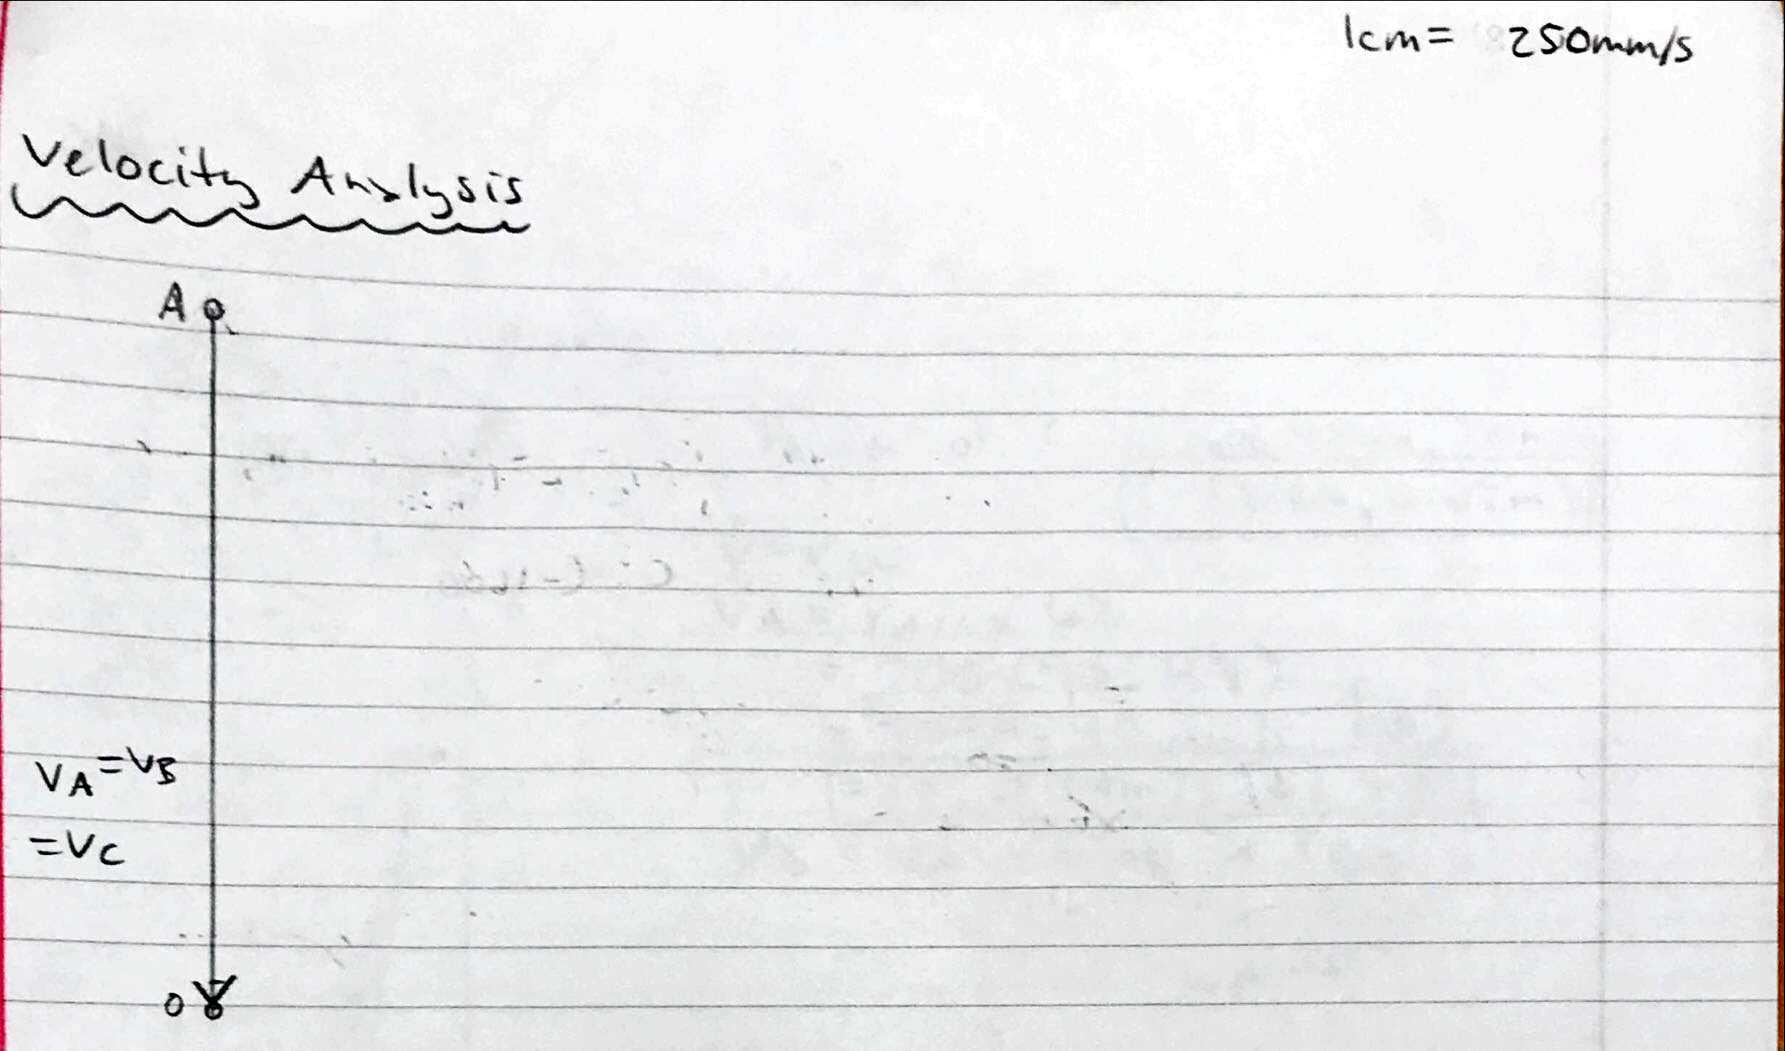 1cm = 250mm/s
Velocity Analysis
A
VA = VB
= VC
0